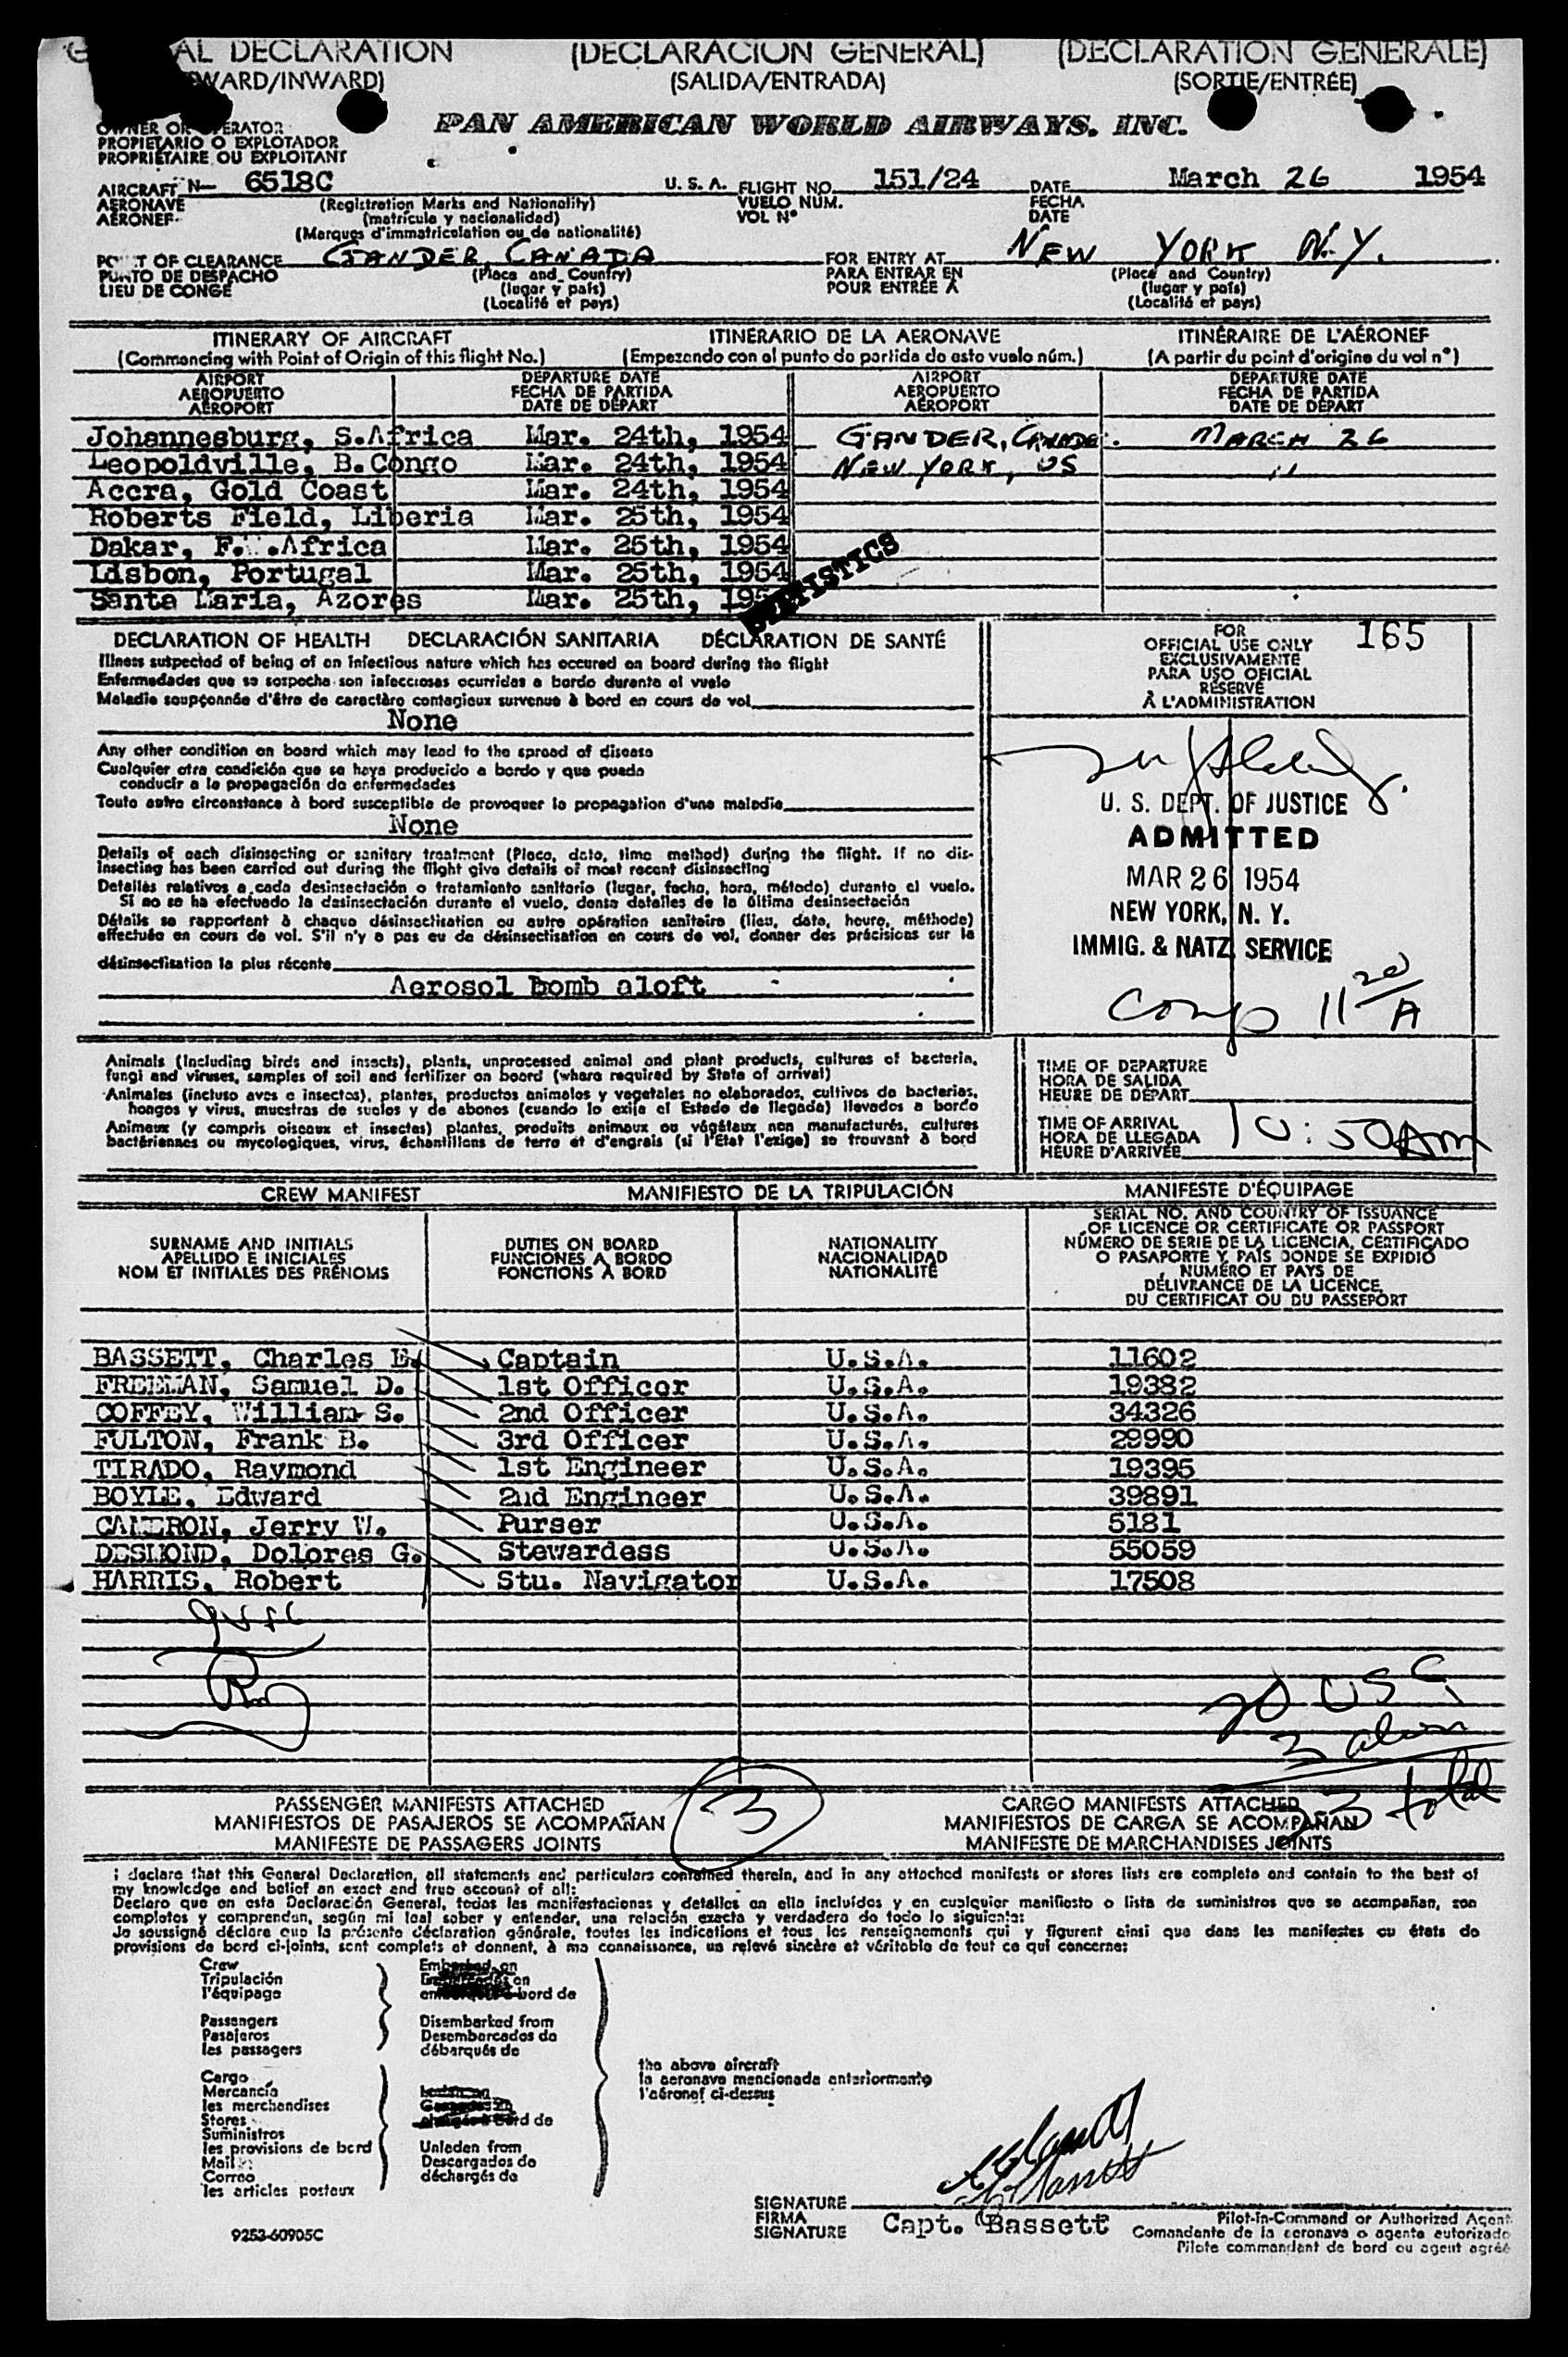 AL DECLARATION (DECLARACION GENERAL) (DECLARATION GENERALE)
WARD/INWARD) (SALIDA/ENTRADA) (SORTIE/ENTRÉE)
OWNER OR OPERATOR
PROPIETARIO O EXPLOTADOR
PROPRIÉTAIRE OU EXPLOITANT
PAN AMERICAN WORLD AIRWAYS, INC.
AIRCRAFT N— 6518C U. S. A. FLIGHT NO. 151/24 DATE March 26 1954
AERONAVE (Registration Marks and Nationality) VUELO NUM. FECHA
AÉRONEF (matrícula y nacionalidad) VOL Nº DATE
(Marques d'immatriculation ou de nationalité)
POINT OF CLEARANCE GANDER, CANADA FOR ENTRY AT NEW YORK N.Y.
PUNTO DE DESPACHO (Place and Country) PARA ENTRAR EN (Place and Country)
LIEU DE CONGÉ (lugar y país) POUR ENTRÉE À (lugar y país)
(Localité et pays) (Localité et pays)
ITINERARY OF AIRCRAFT ITINERARIO DE LA AERONAVE ITINÉRAIRE DE L'AÉRONEF
(Commencing with Point of Origin of this flight No.) (Empezando con el punto de partida de este vuelo núm.) (A partir du point d'origine du vol nº)
AIRPORT DEPARTURE DATE AIRPORT DEPARTURE DATE
AEROPUERTO FECHA DE PARTIDA AEROPUERTO FECHA DE PARTIDA
AÉROPORT DATE DE DÉPART AÉROPORT DATE DE DÉPART
Johannesburg, S.Africa Mar. 24th, 1954 GANDER, CANADA. MARCH 26
Leopoldville, B.Congo Mar. 24th, 1954 NEW YORK, US "
Accra, Gold Coast Mar. 24th, 1954
Roberts Field, Liberia Mar. 25th, 1954
Dakar, F. .Africa Mar. 25th, 1954
Lisbon, Portugal Mar. 25th, 1954
Santa Maria, Azores Mar. 25th, 195
STATISTICS
DECLARATION OF HEALTH DECLARACIÓN SANITARIA DÉCLARATION DE SANTÉ
Illness suspected of being of an infectious nature which has occured on board during the flight
Enfermedades que se sospecha son infecciosas ocurridas a bordo durante el vuelo
Maladie soupçonnée d'être de caractère contagieux survenue à bord en cours de vol
None
Any other condition on board which may lead to the spread of disease
Cualquier otra condición que se haya producido a bordo y que pueda
conducir a la propagación de enfermedades
Toute autre circonstance à bord susceptible de provoquer la propagation d'une maladie
None
Details of each disinsecting or sanitary treatment (Place, date, time method) during the flight. If no dis-
insecting has been carried out during the flight give details of most recent disinsecting
Detalles relativos a cada desinsectación o tratamiento sanitario (lugar, fecha, hora, método) durante el vuelo.
Si no se ha efectuado la desinsectación durante el vuelo, donse detalles de la última desinsectación
Détails se rapportant à chaque désinsectisation ou autre opération sanitaire (lieu, date, heure, méthode)
effectuée en cours de vol. S'il n'y a pas eu de désinsectisation en cours de vol, donner des précisions sur la
désinsectisation la plus récente
Aerosol bomb aloft
FOR 165
OFFICIAL USE ONLY
EXCLUSIVAMENTE
PARA USO OFICIAL
RÉSERVÉ
À L'ADMINISTRATION
U. S. DEPT. OF JUSTICE
ADMITTED
MAR 26 1954
NEW YORK, N. Y.
IMMIG. & NATZ. SERVICE
Comp 11 20/A
Animals (including birds and insects), plants, unprocessed animal and plant products, cultures of bacteria,
fungi and viruses, samples of soil and fertilizer on board (where required by State of arrival)
Animales (incluso aves e insectos), plantas, productos animales y vegetales no elaborados, cultivos de bacterias,
hongos y virus, muestras de suelos y de abonos (cuando lo exija el Estado de llegada) llevados a bordo
Animaux (y compris oiseaux et insectes) plantes, produits animaux ou végétaux non manufacturés, cultures
bactériennes ou mycologiques, virus, échantillons de terre et d'engrais (si l'État l'exige) se trouvant à bord
TIME OF DEPARTURE
HORA DE SALIDA
HEURE DE DÉPART
TIME OF ARRIVAL
HORA DE LLEGADA 10:50AM
HEURE D'ARRIVÉE
CREW MANIFEST MANIFIESTO DE LA TRIPULACIÓN MANIFESTE D'ÉQUIPAGE
SURNAME AND INITIALS
APELLIDO E INICIALES
NOM ET INITIALES DES PRÉNOMS
DUTIES ON BOARD
FUNCIONES A BORDO
FONCTIONS À BORD
NATIONALITY
NACIONALIDAD
NATIONALITÉ
SERIAL NO. AND COUNTRY OF ISSUANCE
OF LICENCE OR CERTIFICATE OR PASSPORT
NÚMERO DE SERIE DE LA LICENCIA, CERTIFICADO
O PASAPORTE Y PAÍS DONDE SE EXPIDIÓ
NUMÉRO ET PAYS DE
DÉLIVRANCE DE LA LICENCE,
DU CERTIFICAT OU DU PASSEPORT
BASSETT, Charles E. Captain U.S.A. 11602
FREEMAN, Samuel D. 1st Officer U.S.A. 19382
COFFEY, William S. 2nd Officer U.S.A. 34326
FULTON, Frank B. 3rd Officer U.S.A. 29990
TIRADO, Raymond 1st Engineer U.S.A. 19395
BOYLE, Edward 2nd Engineer U.S.A. 39891
CAMERON, Jerry W. Purser U.S.A. 5181
DESMOND, Dolores G. Stewardess U.S.A. 55059
HARRIS, Robert Stu. Navigator U.S.A. 17508
20 USC
3 alien
23 total
PASSENGER MANIFESTS ATTACHED 3 CARGO MANIFESTS ATTACHED
MANIFIESTOS DE PASAJEROS SE ACOMPAÑAN MANIFIESTOS DE CARGA SE ACOMPAÑAN
MANIFESTE DE PASSAGERS JOINTS MANIFESTE DE MARCHANDISES JOINTS
I declare that this General Declaration, all statements and particulars contained therein, and in any attached manifests or stores lists are complete and contain to the best of
my knowledge and belief an exact and true account of all:
Declaro que en esta Declaración General, todas las manifestaciones y detalles en ella incluídos y en cualquier manifiesto o lista de suministros que se acompañan, son
completos y comprenden, según mi leal saber y entender, una relación exacta y verdadera de todo lo siguiente:
Je soussigné déclare que la présente déclaration générale, toutes les indications et tous les renseignements qui y figurent ainsi que dans les manifestes ou états de
provisions de bord ci-joints, sont complets et donnent, à ma connaissance, un relevé sincère et véritable de tout ce qui concerne:
Crew Embarked on
Tripulación on
l'équipage bord de
Passengers Disembarked from
Pasajeros Desembarcados de
les passagers débarqués de
the above aircraft
la aeronave mencionada anteriormente
l'aéronef ci-dessus
Cargo
Mercancía
les merchandises
Stores bord de
Suministros
les provisions de bord Unladen from
Mail Descargados de
Correo déchargés de
les articles postaux
SIGNATURE
FIRMA Capt. Bassett Pilot-in-Command or Authorized Agent
SIGNATURE Comandante de la aeronave o agente autorizado
Pilote commandant de bord ou agent agréé
9253-60905C